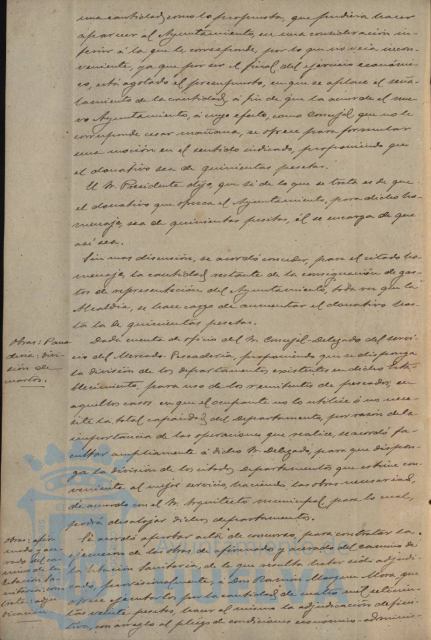 una cantidad, como lo propuesto, que pudiera hacer
aparecer al Ayuntamiento, en una consideración in-
ferior á la que le corresponde, por lo que no veía incon-
veniente, ya que por ser el final del ejercicio económi-
co, está agotado el presupuesto, en que se aplace el seña-
lamiento de la cantidad, á fin de que la acuerde el nue-
vo Ayuntamiento, á cuyo efecto, como Concejal que no le
corresponde cesar mañana, se ofrece para formular
una moción en el sentido indicado, proponiendo que
el donativo sea de quinientas pesetas.
El Sr. Presidente dijo, que si de lo que se trata es de que
el donativo que ofrezca el Ayuntamiento, para dicho ho-
menaje, sea de quinientas pesetas, él se encarga de que
así sea.
Sin mas discusion, se acordó conceder, para el citado ho-
menaje, la cantidad restante de la consignación de gas-
tos de representación del Ayuntamiento, toda vez que la
Alcaldía, se hace cargo de aumentar el donativo has-
ta las quinientas pesetas.
Dada cuenta de oficio del Sr. Concejal-Delegado del servi-
cio del Mercado Pescadería, proponiendo que se disponga
la división de los departamentos existentes en dicho Esta-
blecimiento, para uso de los remitentes de pescados, en
aquellos casos en que el ocupante no lo utilice ó no nece-
site la total capacidad del departamento, por razón de la
importancia de las operaciones que realice, se acordó fa-
cultar ampliamente á dicho Sr. Delegado, para que dispon-
ga la división de los citados departamentos que estime con-
veniente al mejor servicio, haciendo las obras necesarias,
de acuerdo con el Sr. Arquitecto municipal, para lo cual,
podrá desalojar dichos departamentos.
Se acordó aprobar acta de concurso, para contratar la
ejecución de las obras de afirmado y acerado del camino de
la Estación Sanitaria, de la que resulta haber sido adjudi-
cado, provisionalmente, á Don Ramón Mora, que
ofrece ejecutarlos por la cantidad de cuatro mil setecien-
tas veinte pesetas, hacer el mismo la adjudicación defini-
tiva, con arreglo al pliego de condiciones económico-adminis-
Obras: Pesca-
dería: divi-
sión de
Obras: afir-
mado y ace-
rado del ca-
mino de la
Estación Sa-
nitaria